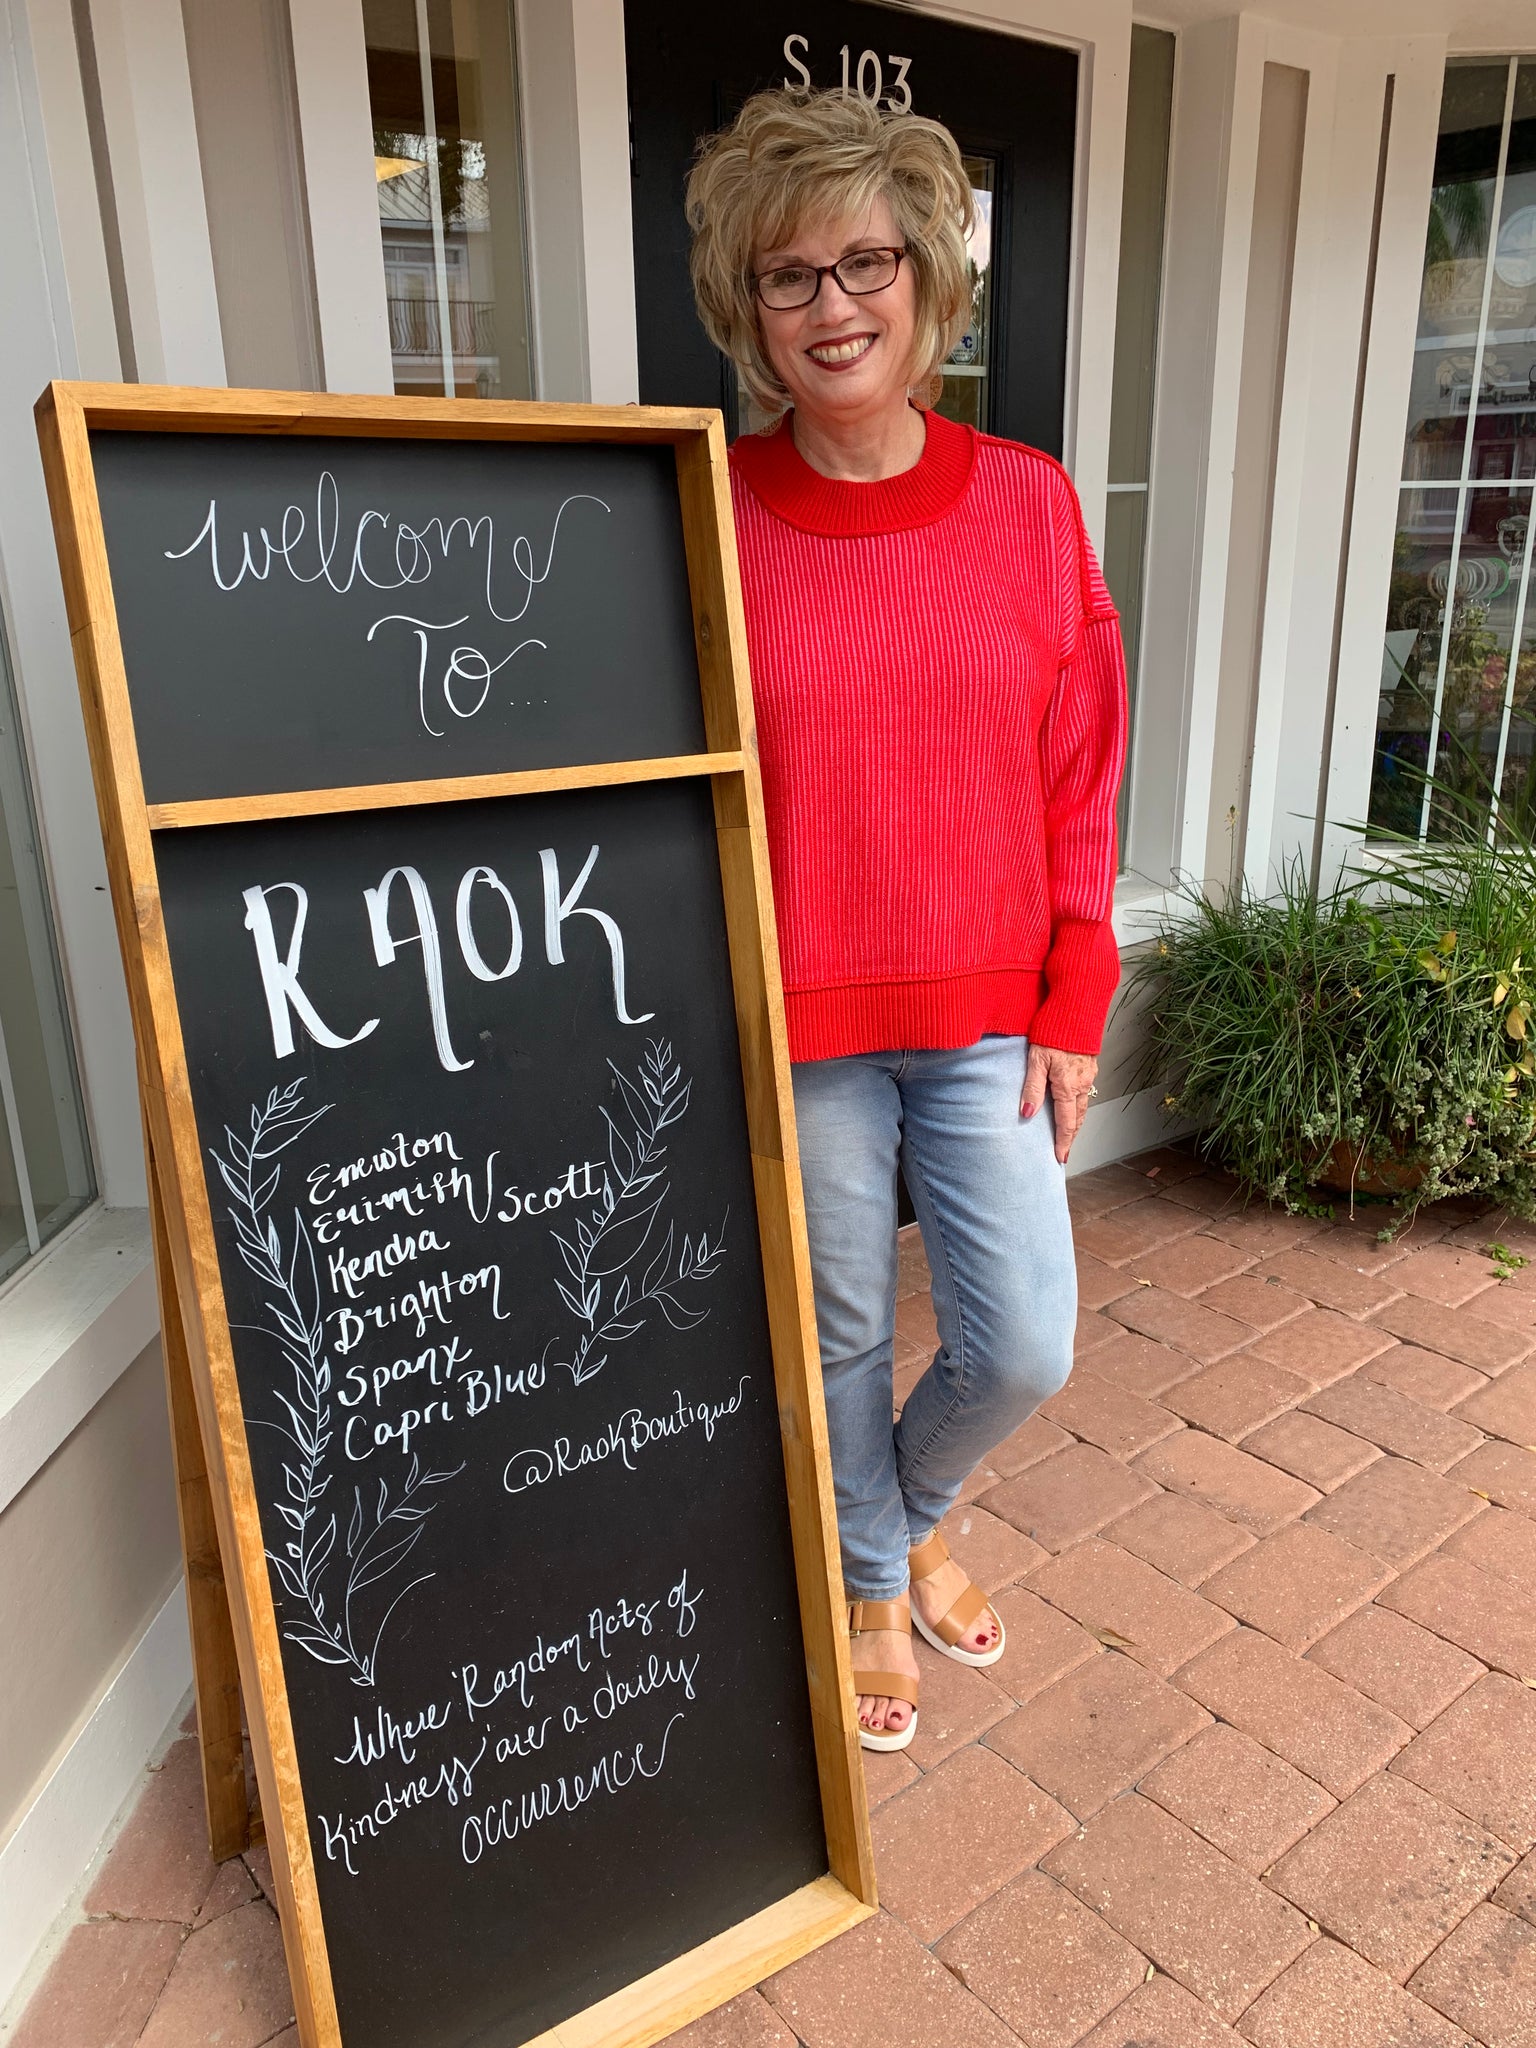 S 103
Welcome
To...
RAOK
Enewton
Erimish
Kendra Scott
Brighton
Spanx
Capri Blue
@RaokBoutique
Where 'Random Acts of
Kindness' are a daily
occurrence